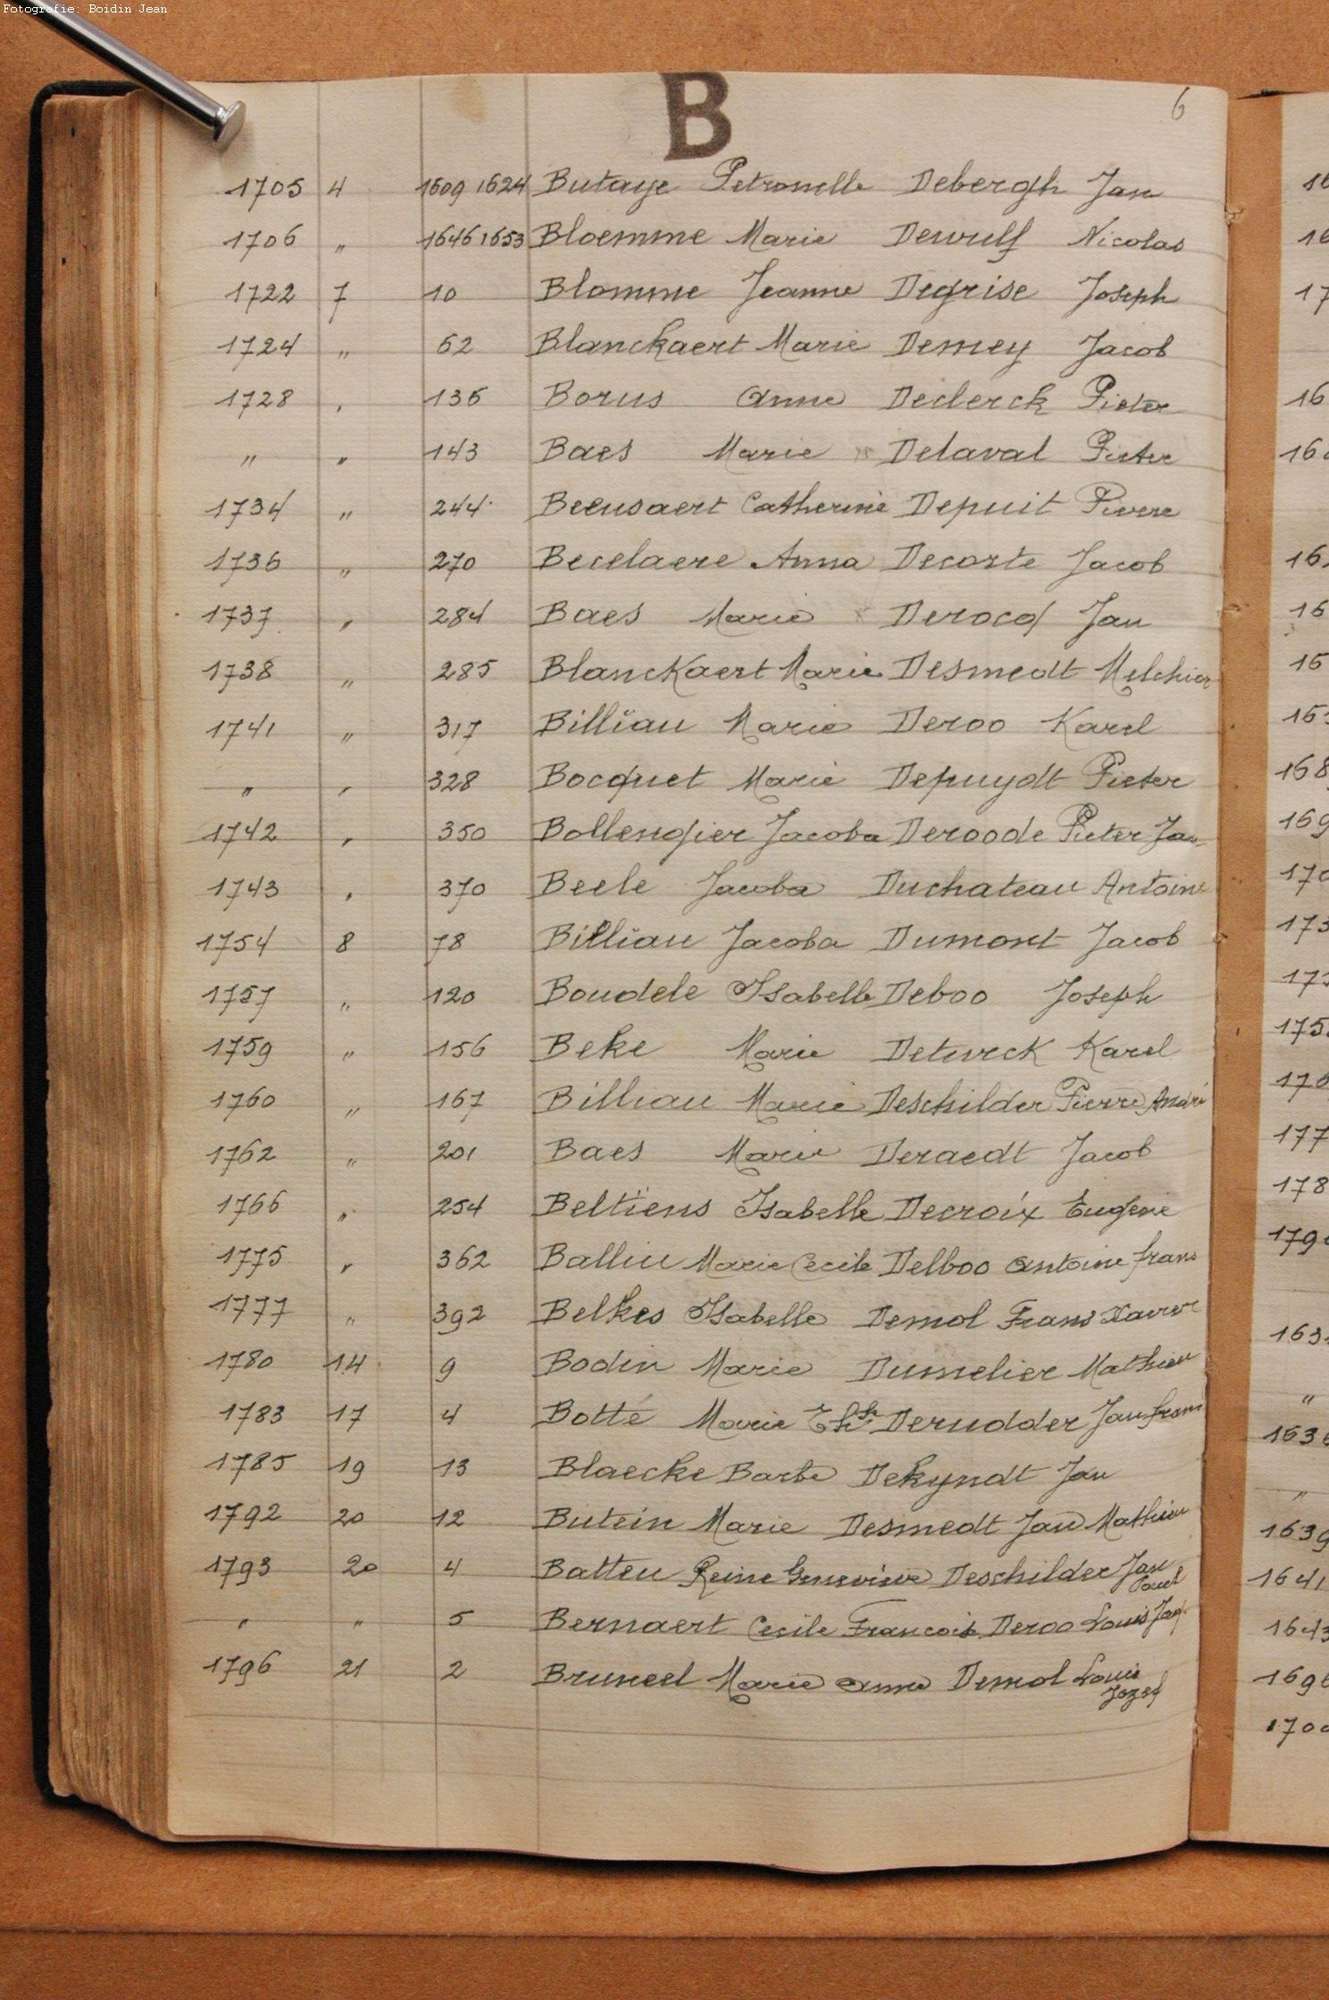 Fotografie: Boidin Jean
B
6
1705 4 1609 1624 Butaye Petronelle Debergh Jan
1706 " 1646 1653 Bloemme Marie Dewulf Nicolas
1722 7 10 Blomme Jeanne Degrise Joseph
1724 " 62 Blanckaert Marie Demey Jacob
1728 " 136 Borus Anne Declerck Pieter
" " 143 Baes Marie Delaval Pieter
1734 " 244 Beeusaert Catherine Depuit Pierre
1736 " 270 Becelaere Anna Decorte Jacob
1737 " 284 Baes Marie Derocq Jan
1738 " 285 Blanckaert Marie Desmedt Melchior
1741 " 317 Billiau Marie Deroo Karel
" " 328 Bocquet Marie Depuydt Pieter
1742 " 350 Bollengier Jacoba Deroode Pieter Jan
1743 " 370 Beele Jacoba Duchateau Antoine
1754 8 78 Billiau Jacoba Dumont Jacob
1757 " 120 Boudele Isabelle Deboo Joseph
1759 " 156 Beke Marie Deturck Karel
1760 " 167 Billiau Marie Deschilder Pierre André
1762 " 201 Baes Marie Deraedt Jacob
1766 " 254 Beltiens Isabelle Decroix Eugene
1775 " 362 Balliu Marie Cecile Delboo Antoine frans
1777 " 392 Belkes Isabelle Demol Frans Xavier
1780 14 9 Bodin Marie Dumelier Mathieu
1783 17 4 Botté Marie Derudder Jan frans
1785 19 13 Blaecke Barbe Dekyndt Jan
1792 20 12 Butein Marie Desmedt Jan Mathieu
1793 20 4 Batteu Reine Genevieve Deschilder Jan
" " 5 Bernaert Cecile Francois Deroo Louis
1796 21 2 Bruneel Marie anne Demol Louis
Jozef